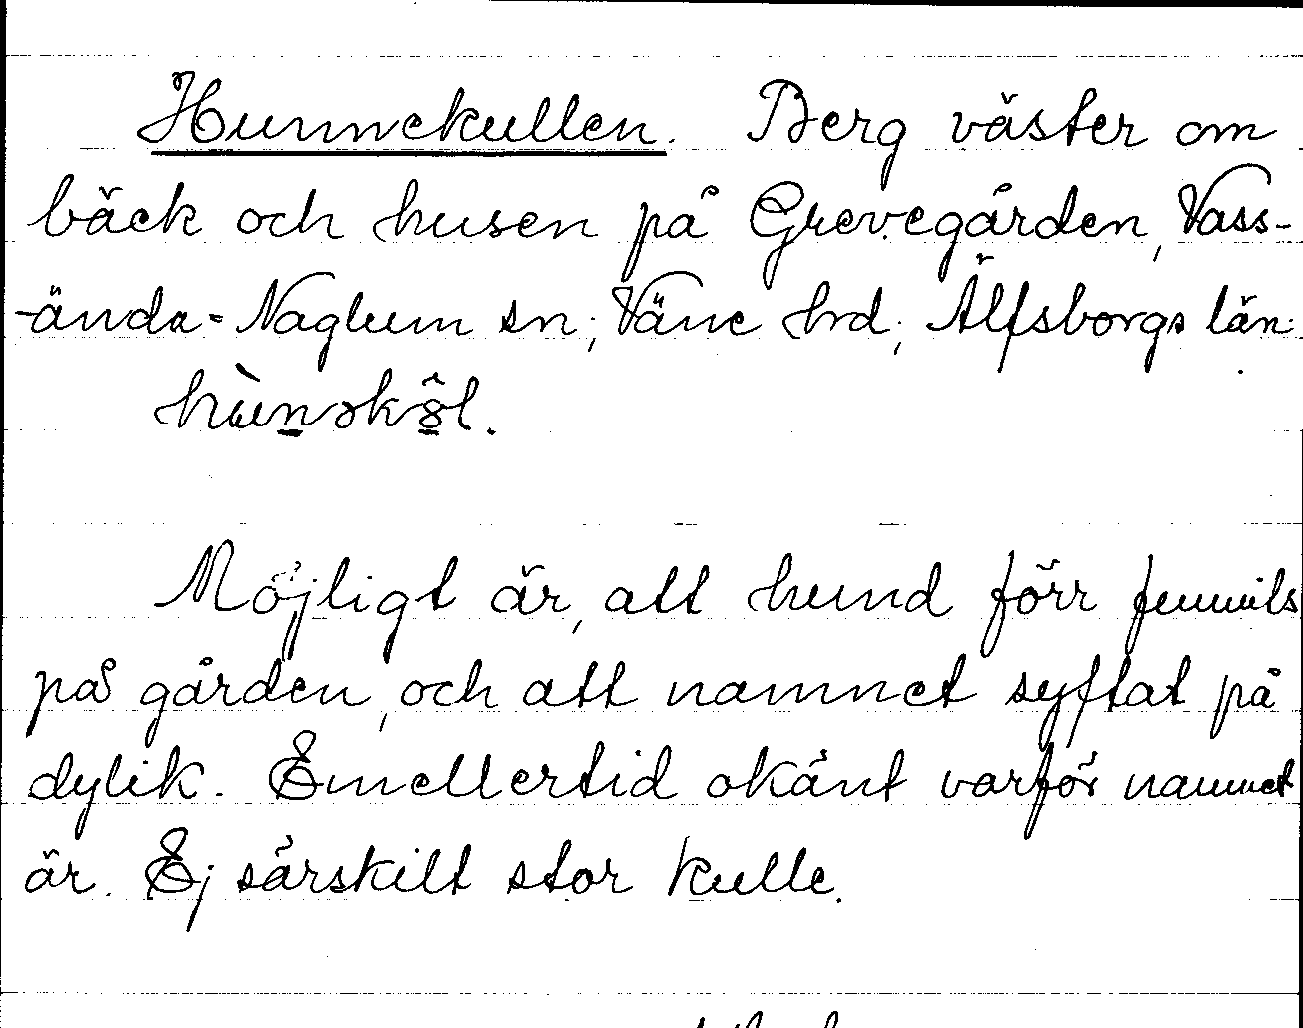 Hunnekullen. Berg väster om
bäck och husen på Grevegården, Vass-
-ända-Naglum sn; Väne hrd; Älfsborgs län.

Möjligt är, att hund förr funnits
på gården, och att namnet syftat på
dylik. Emellertid okänt varför namnet
är. Ej särskilt stor kulle.